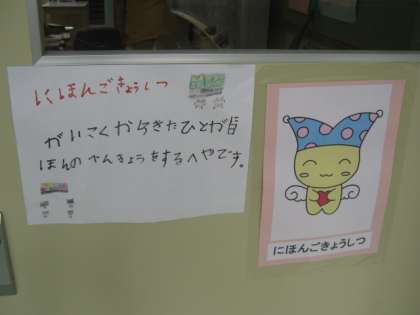 にほんごきょうしつ
がいこくからきたひとが日
ほんのべんきょうをするへやです。
にほんごきょうしつ